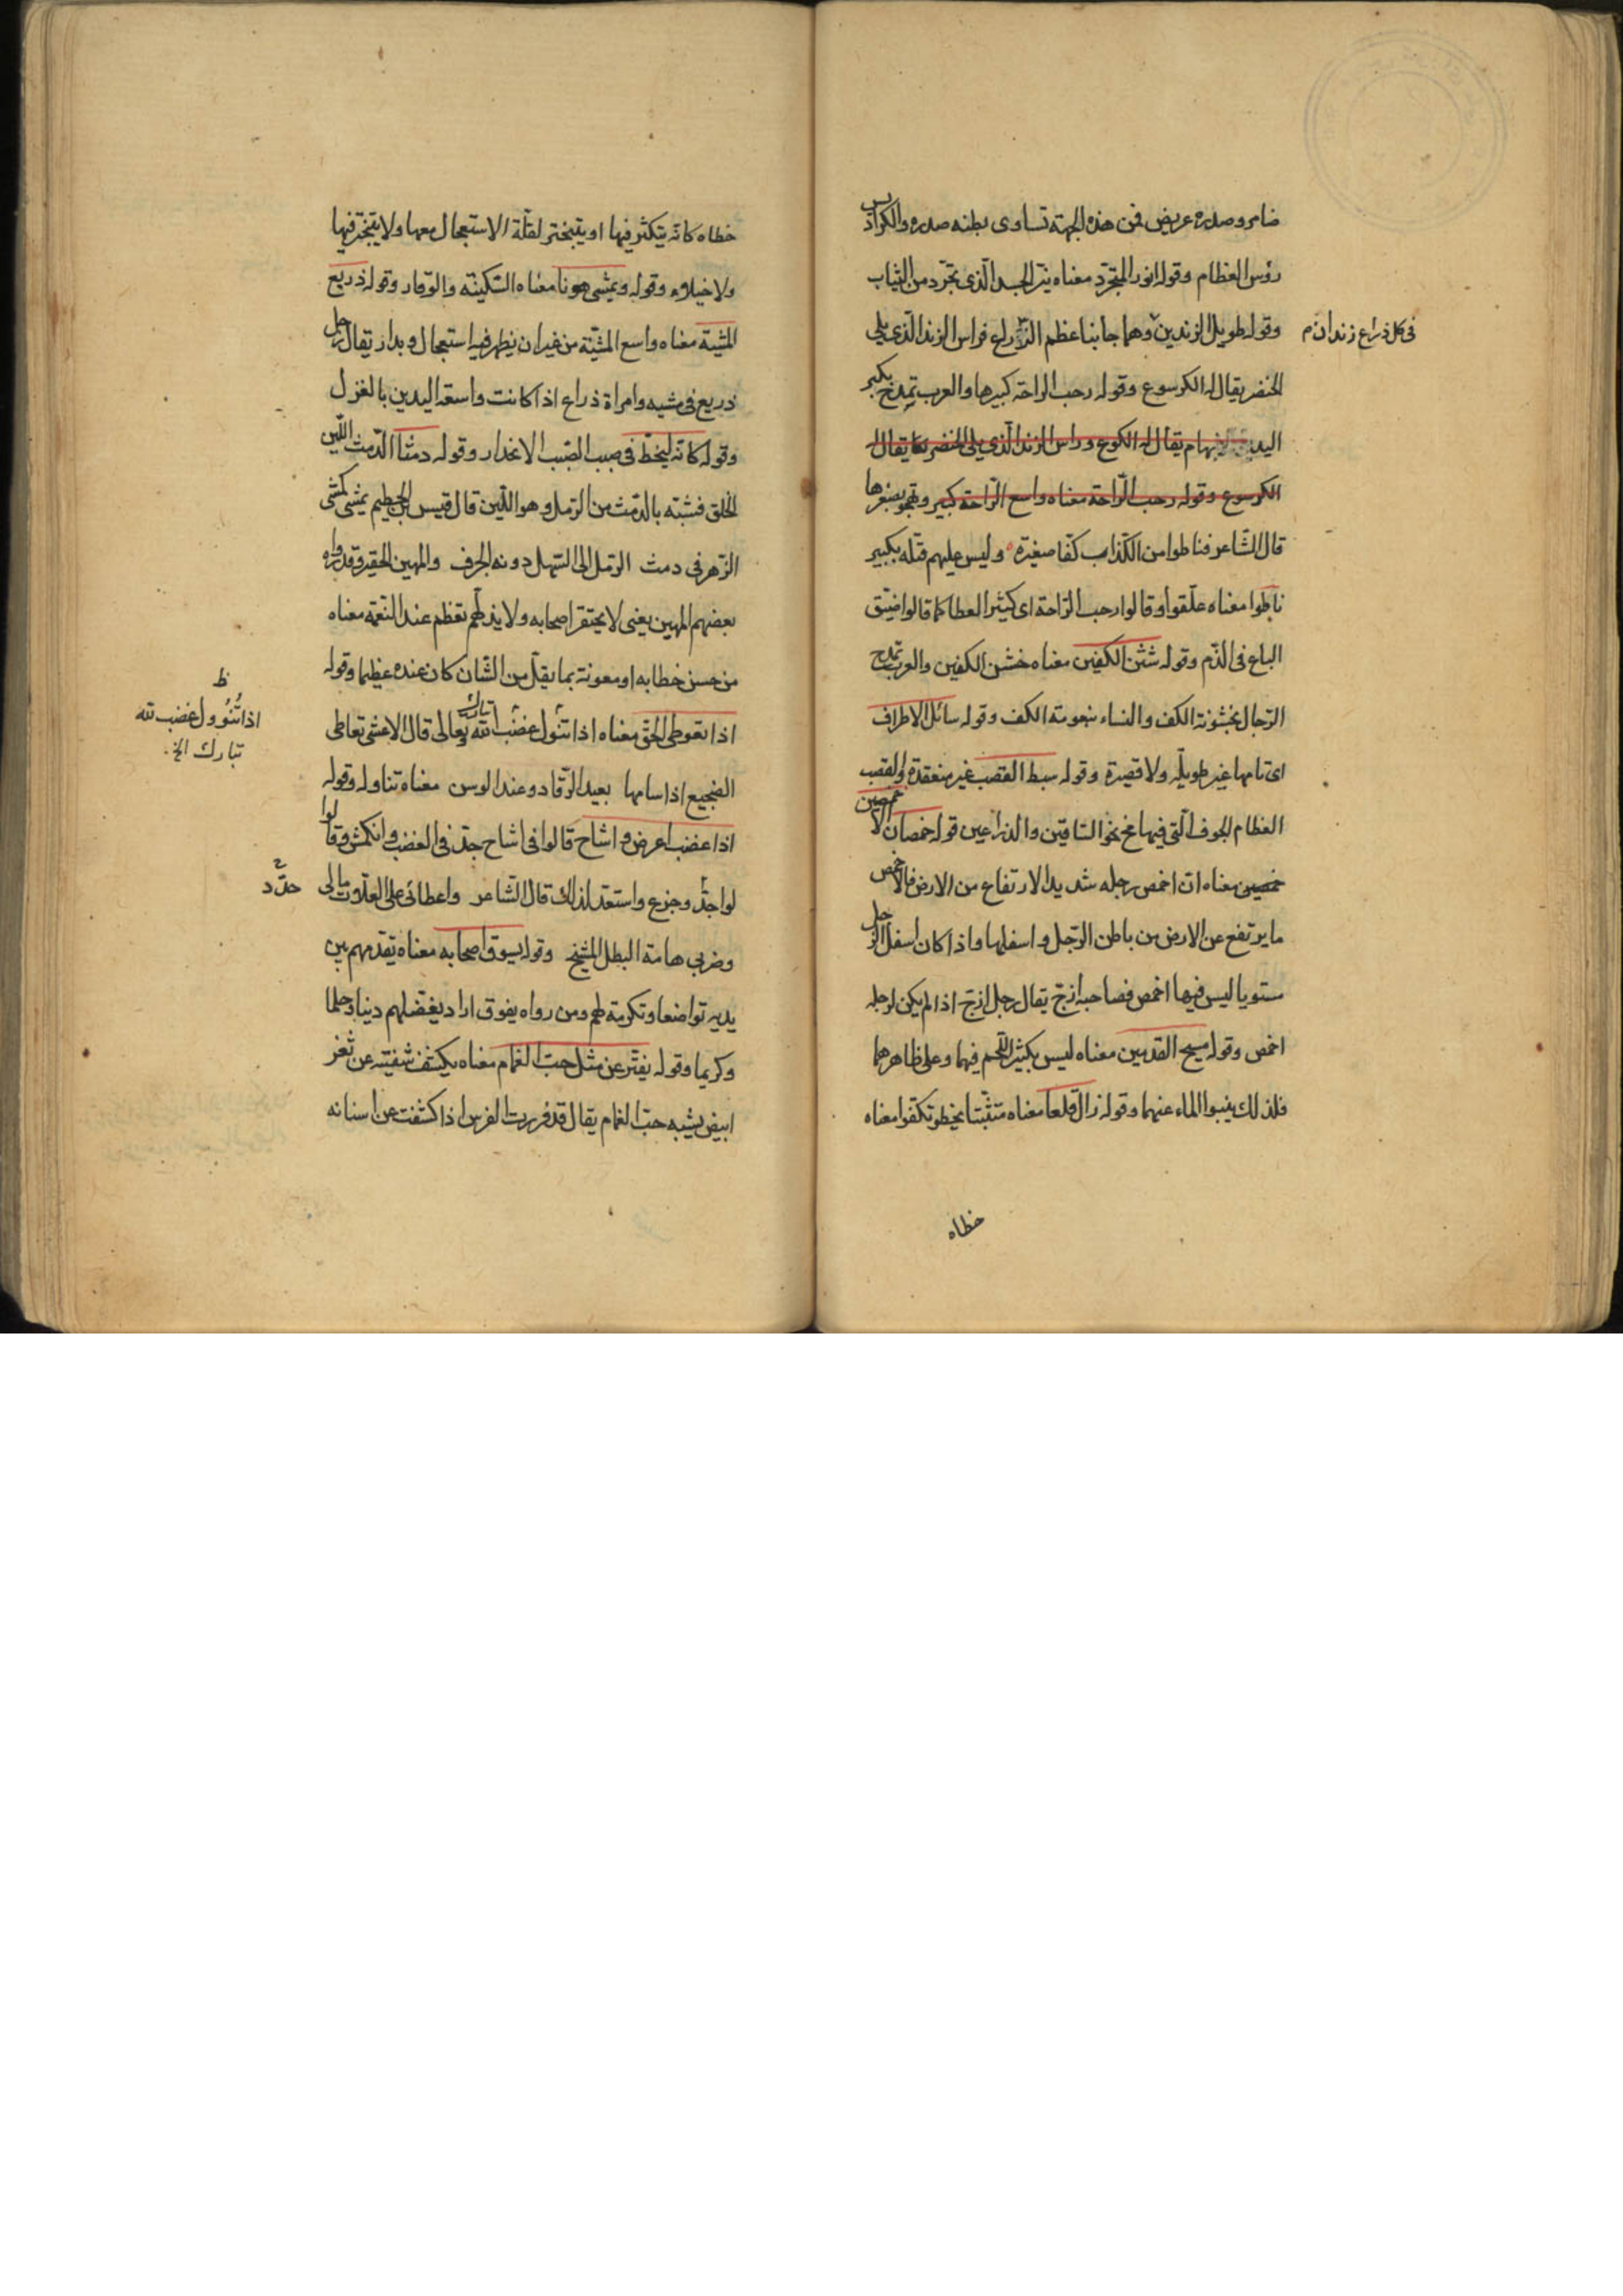 ضامر وصدره عريض فمن هذه الجهة تساوى بطنه صدره والكراديس
رؤس العظام وقوله انور المتجرّد معناه نيّر الجسد الّذى تجرّد من الثياب
وقوله طويل الزندين وهما جانبا عظم الذّراع فراس الزند الّذى يلى
فى كل ذراع زندان م
الخنصر يقال له الكرسوع وقوله رحب الراحة كبيرها والعرب تمدح بكبر
اليد الابهام يقال له الكوع وراس الزند الّذى يلى الخنصر يقال له
الكرسوع وقوله رحب الرّاحة معناه واسع الرّاحة كبير وتهجو بصغرها
قال الشّاعر فناطوا من الكذّاب كفّا صغيرة ٥ وليس عليهم قتله بكبير
ناطوا معناه علّقوا وقالوا رحب الرّاحة اى كثير العطا كما قالوا ضيّق
الباع فى الذّم وقوله شثن الكفين معناه خشن الكفين والعرب تمدح
الرّجال بخشونة الكف والنساء بنعومة الكف وقوله سائل الاطراف
اى تامها غير طويلة ولا قصيرة وقوله سبط القصب غير منعقدة والقصب
العظام الجوف الّتى فيها مخ نحو السّاقين والذراعين قوله خمصان الاخمصين
خمصين معناه انّ اخمص رجله شديد الارتفاع من الارض فالاخمص
ما يرتفع عن الارض من باطن الرّجل واسفلها واذا كان اسفل الرّجل
مستويا ليس فيها اخمص فصاحبه ازجّ يقال رجل ازجّ اذا لم يكن لرجله
اخمص وقوله مسيح القدمين معناه ليس بكثير اللّحم فيها وعلى ظاهرهما
فلذلك ينبوا الماء عنهما وقوله زال قلعا معناه متثبّتا يخطو تكفّوا معناه
خطاه
خطاه كانّه يتكثر فيها او يتبختر لقلّة الاستعجال معها ولا يتبختر فيها
ولا خيلاء وقوله ويمشى هونا معناه السّكينة والوقار وقوله ذريع
المشية معناه واسع المشيّة من غير ان يظهر فيه استعجال وبدار يقال رجل
ذريع فى مشيه وامراة ذراع اذا كانت واسعة اليدين بالغزل
وقوله كانّه ينحطّ فى صبب الصّبب الانحدار وقوله دمثا الدّمث اللّين
الخلق فشبّه بالدّمث من الرّمل وهو اللّين قال قيس بن الخطيم يمشى كمشى
الزّهر فى دمث الرّمل الى السّهل دونه الجرف والمهين الحقير وقد رواه
بعضهم المهين يعنى لا يحتقر اصحابه ولا يذلّهم تعظم عنده النّعمة معناه
من حسن خطابه او معونة بما يقلّ من الشّان كان عنده عظيما وقوله
اذا تعوطى الحق معناه اذا تنوّل غضب لله تبارك وتعالى قال الاعشى تعاطى
ظ
اذا تُنُوول غضب لله
تبارك الخ.
الضجيع اذا سامها بعيد الرّقاد وعند الوسن معناه تناوله وقوله
اذا غضب اعرض واشاح قالوا فى اشاح جدّ فى الغضب وانكمش وقالوا
لوا جدّ وجزع واستعدّ لذلك قال الشّاعر واعطائى على العلّات مالى
حدّد
وضربى هامة البطل المشيح وقوله يسوق اصحابه معناه يقدمهم بين
يديه تواضعا وتكرمة لهم ومن رواه يفوق اراد يفضلهم دينا وحلما
وكريما وقوله يفترّ عن مثل حبّ الغمام معناه يكشف شفتيه عن ثغر
ابيض يشبه حبّ الغمام يقال قد فررت الفرس اذا كشفت عن اسنانه